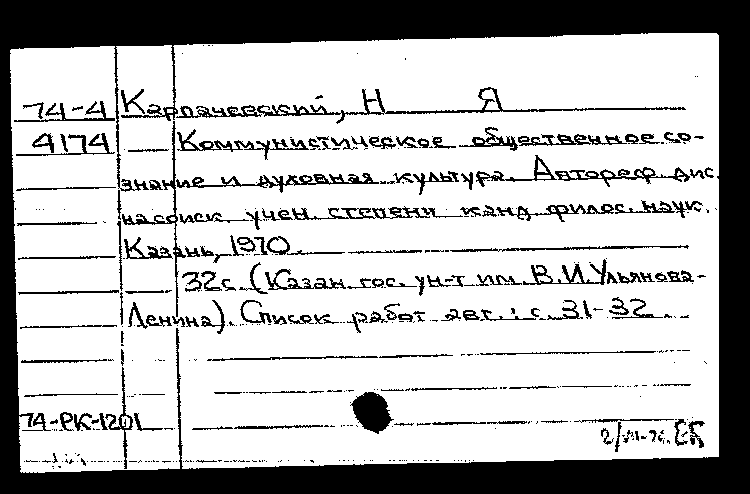 74-4 Карпачевский, Н Я
4174 Коммунистическое общественное со-
знание и духовная культура. Автореф. дис.
на соиск. учен. степени канд. филос. наук.
Казань, 1970.
32с. (Казан. гос. ун-т им. В.И. Ульянова-
Ленина). Список работ авт.: с. 31-32.
74-РК-1201
2/VII-74. ЕК